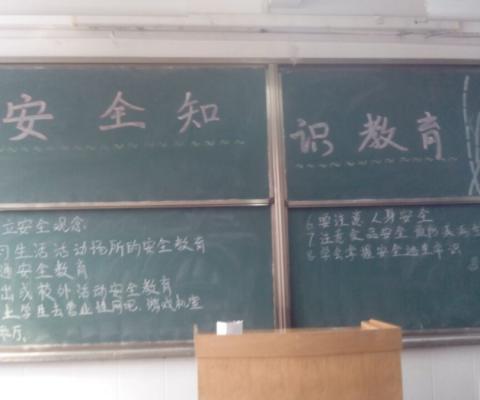 安全知识教育
立安全观念
习生活活动场所的安全教育
通安全教育
出或校外活动安全教育
止学生去营业性网吧、游戏机室
歌厅。
6 要注意人身安全
7 注意食品安全
8 学会掌握安全逃生常识